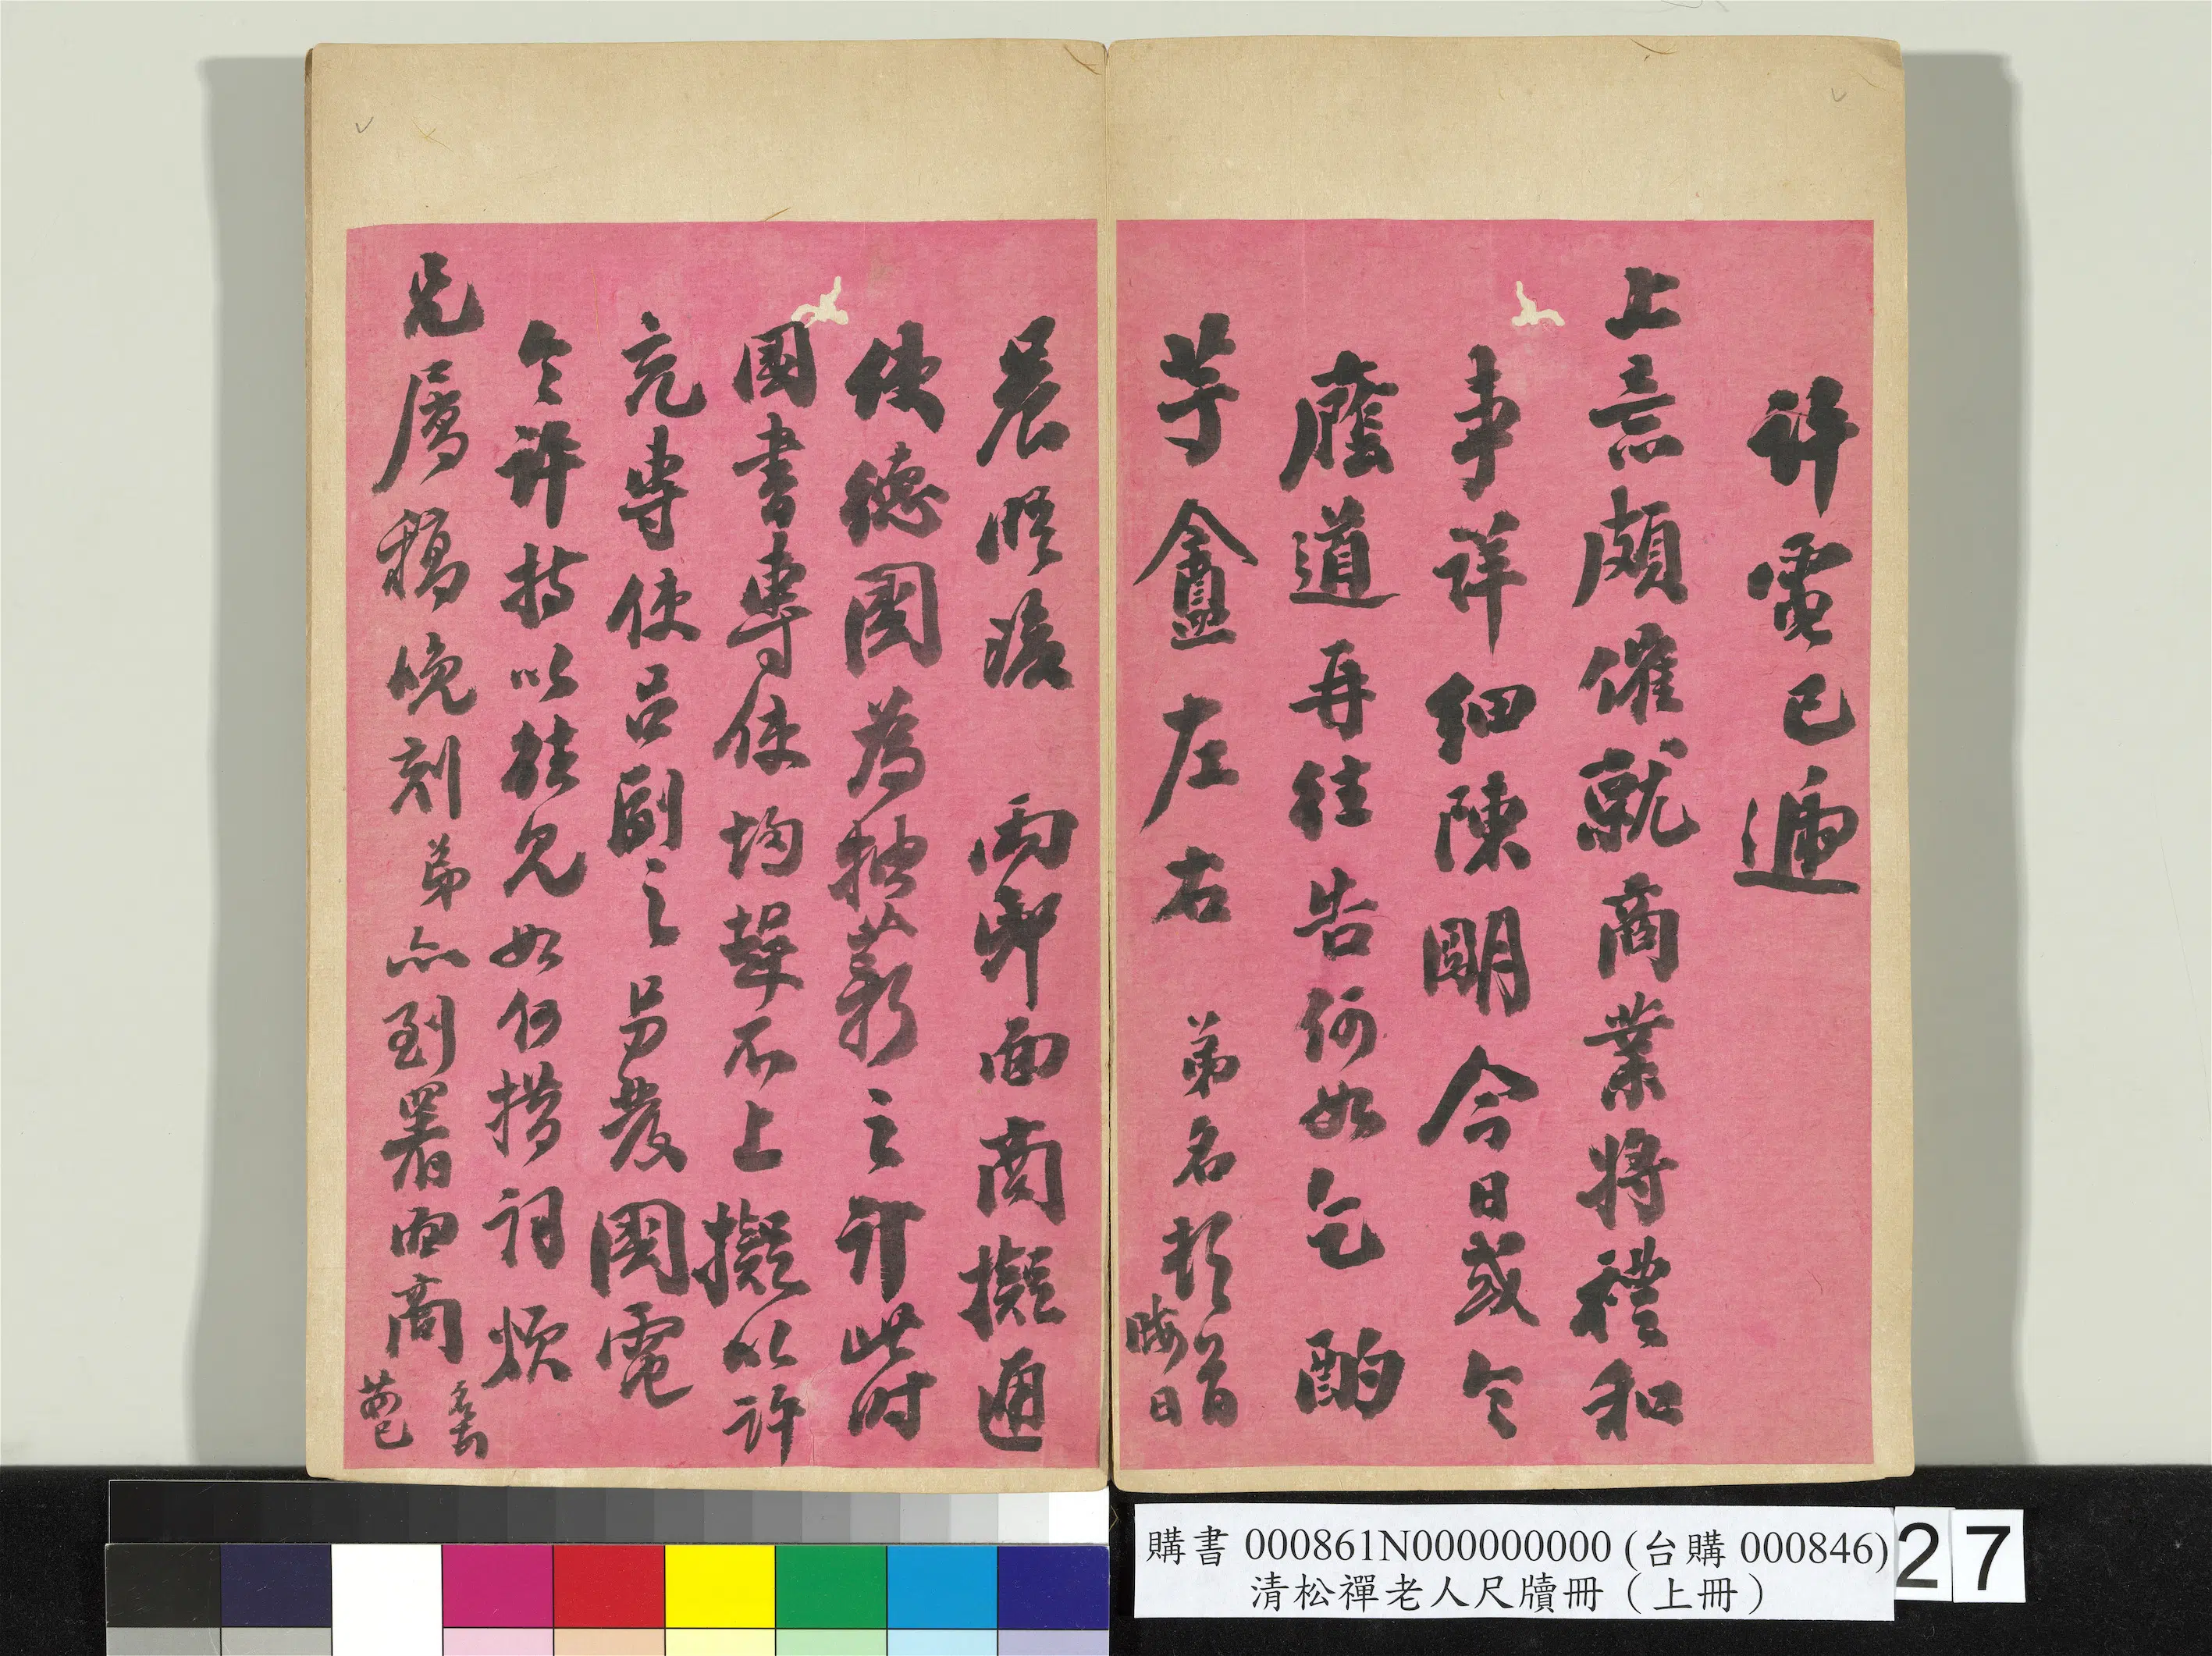 許電已遞
上意頗催就商業將禮和
事詳細陳明今日或令
蔭道再往告何如乞酌
芋盦左右 弟名頓首
晦日
晨晤 兩邸面商擬通
使德國為抽薪之計此時
國書專使均趕不上擬以許
充專使呂副之另發國電
令許持以往見如何措詞煩
兄屬稿晚刻弟亦到署面商
購書 000861N000000000 (台購 000846)
清松禪老人尺牘冊（上冊）
27